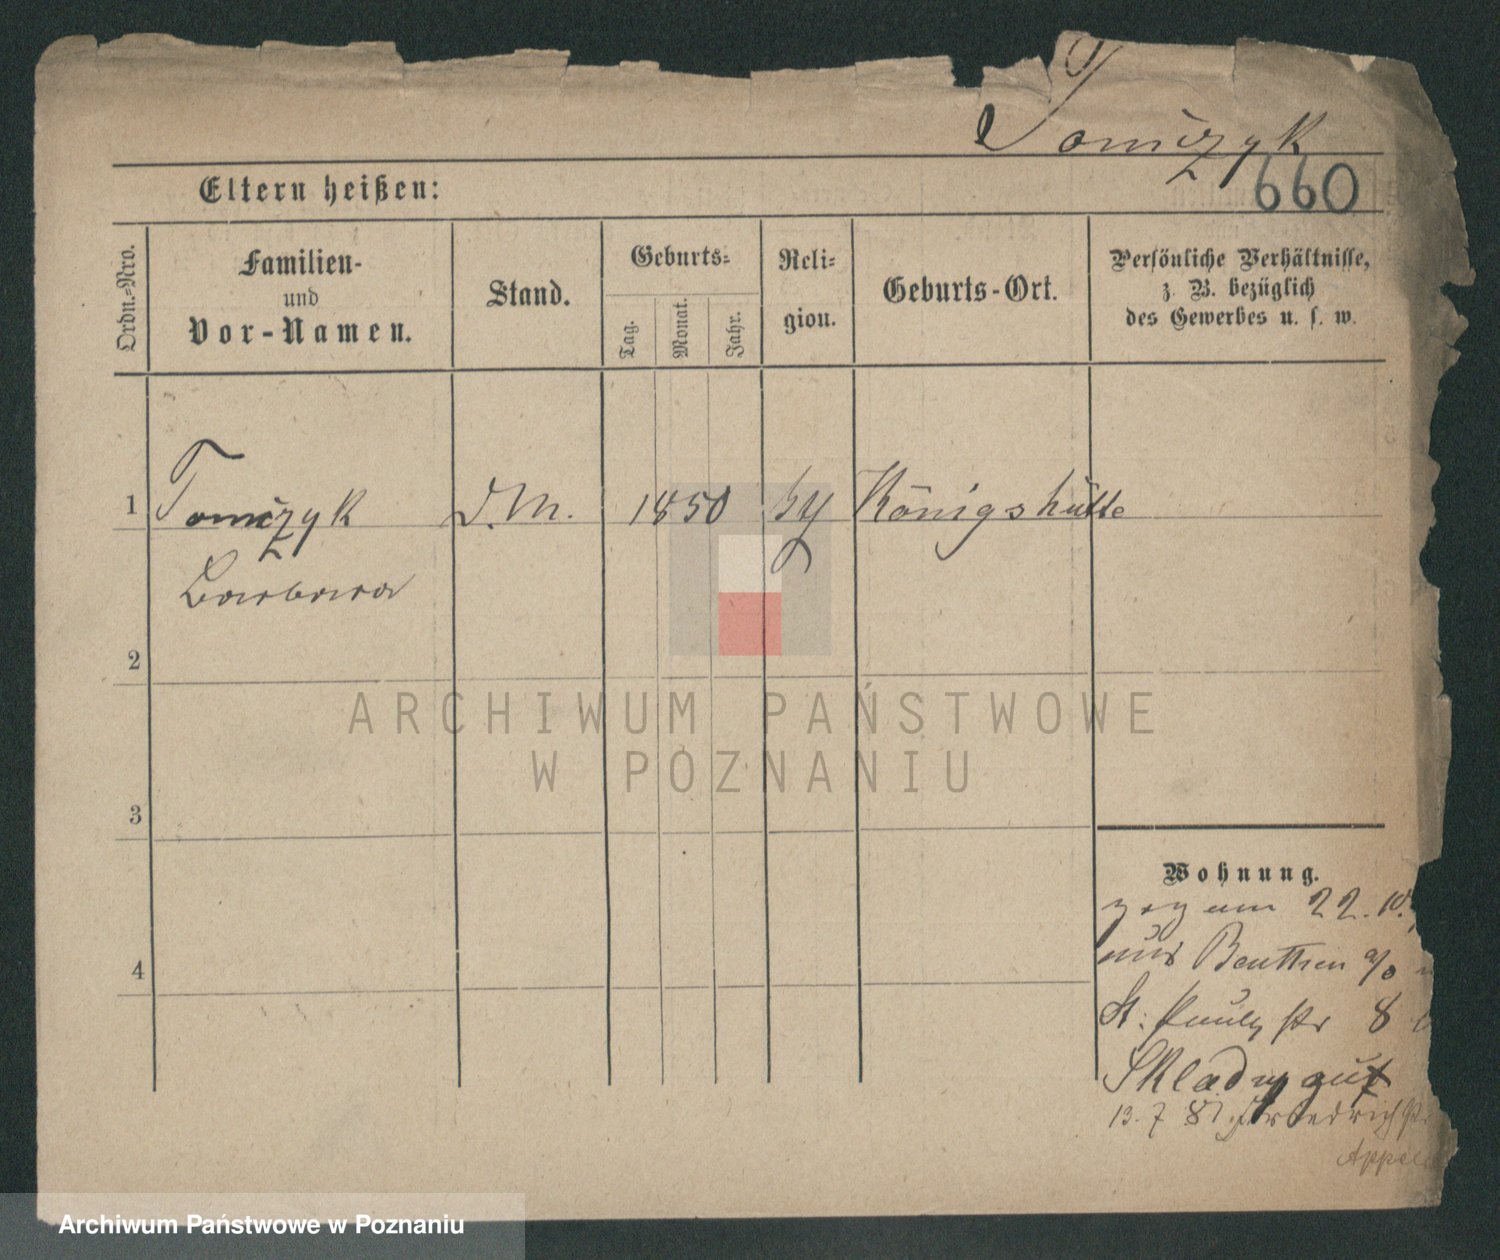 Tomczyk
660
Eltern heißen:
Ordn.-Nro.
Familien-
und
Vor-Namen.
Stand.
Geburts-
Tag.
Monat.
Jahr.
Reli-
gion.
Geburts-Ort.
Persönliche Verhältnisse,
z. B. bezüglich
des Gewerbes u. s. w.
1 Tomczyk D.M. 1850 Königshütte
Barbara
2
3
4
Wohnung.
zog am 22. 10.
aus Beuthen a/o
St: Pauly str 8
13. 7 81 Friedrichstr
Appel
ARCHIWUM PAŃSTWOWE
W POZNANIU
Archiwum Państwowe w Poznaniu